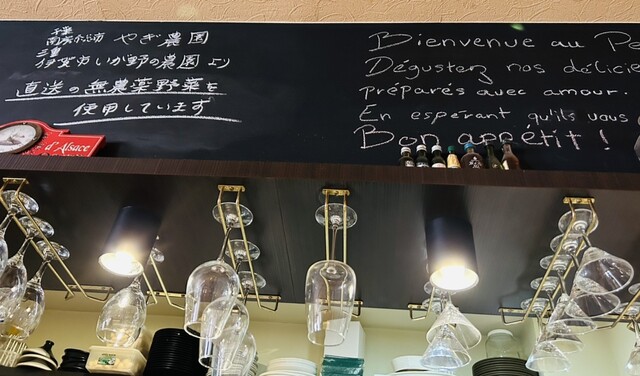 千葉
南房総 やぎ農園
三重
伊賀 いが野の農園より
直送の無農薬野菜を
使用しています
d'Alsace
Bienvenue au
Dégustez nos
préparés avec amour.
En espérant qu'ils vous
Bon appétit !